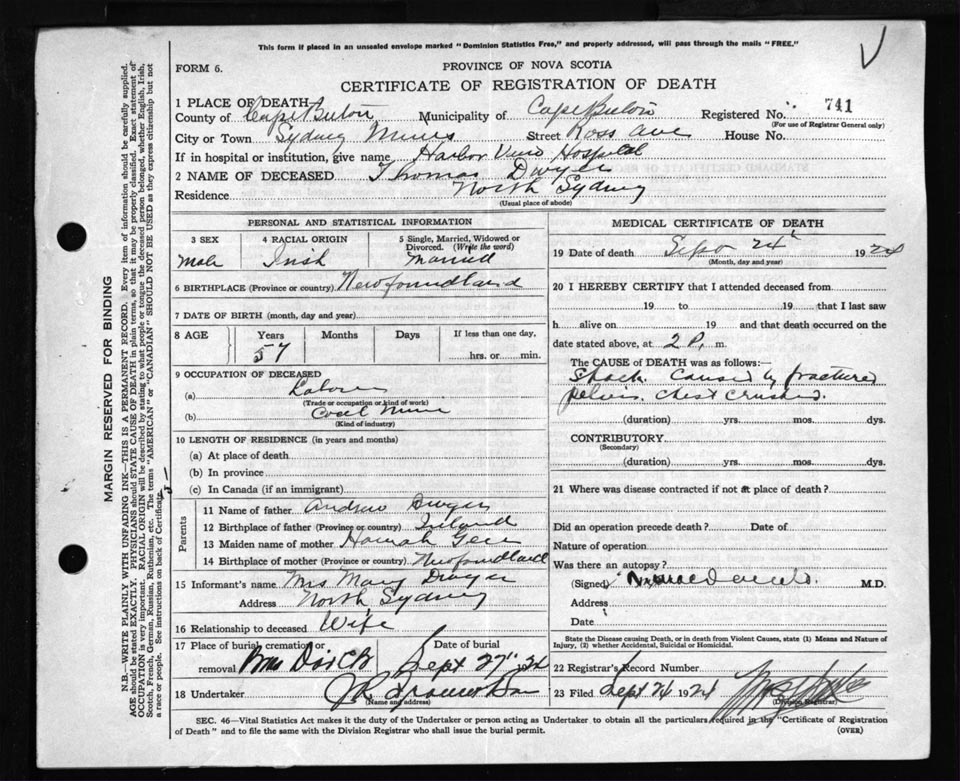 This form if placed in an unsealed envelope marked "Dominion Statistics Free," and properly addressed, will pass through the mails "FREE."
FORM 6.
PROVINCE OF NOVA SCOTIA
CERTIFICATE OF REGISTRATION OF DEATH
1 PLACE OF DEATH
County of Cape Breton Municipality of Cape Breton Registered No. 741
(For use of Registrar General only)
City or Town Sydney Mines Street Ross Ave House No.
If in hospital or institution, give name Harbor View Hospital
2 NAME OF DECEASED Thomas Dwyer
Residence North Sydney
(Usual place of abode)
PERSONAL AND STATISTICAL INFORMATION
3 SEX 4 RACIAL ORIGIN 5 Single, Married, Widowed or Divorced. (Write the word)
Male Irish Married
6 BIRTHPLACE (Province or country) Newfoundland
7 DATE OF BIRTH (month, day and year)
8 AGE Years Months Days If less than one day,
57 hrs. or min.
9 OCCUPATION OF DECEASED
(a) Laborer
(Trade or occupation or kind of work)
(b) Coal Mine
(Kind of industry)
10 LENGTH OF RESIDENCE (in years and months)
(a) At place of death
(b) In province
(c) In Canada (if an immigrant)
Parents
11 Name of father Andrew Dwyer
12 Birthplace of father (Province or country) Ireland
13 Maiden name of mother Hannah
14 Birthplace of mother (Province or country) Newfoundland
15 Informant's name Mrs Mary Dwyer
Address North Sydney
16 Relationship to deceased Wife
17 Place of burial, cremation or removal
Date of burial Sept 27 24
18 Undertaker
(Name and address)
MEDICAL CERTIFICATE OF DEATH
19 Date of death Sept 24 1924
(Month, day and year)
20 I HEREBY CERTIFY that I attended deceased from
19 to 19 that I last saw
h alive on 19 and that death occurred on the
date stated above, at 2 P. m.
The CAUSE of DEATH was as follows:
Shock. Caused by fractured
pelvis. chest crushed.
(duration) yrs. mos. dys.
CONTRIBUTORY
(Secondary)
(duration) yrs. mos. dys.
21 Where was disease contracted if not at place of death?
Did an operation precede death? Date of
Nature of operation
Was there an autopsy?
(Signed) M.D.
Address
Date
State the Disease causing Death, or in death from Violent Causes, state (1) Means and Nature of Injury, (2) whether Accidental, Suicidal or Homicidal.
22 Registrar's Record Number
23 Filed Sept 24 1924
(Division Registrar)
SEC. 46—Vital Statistics Act makes it the duty of the Undertaker or person acting as Undertaker to obtain all the particulars required in the "Certificate of Registration
of Death" and to file the same with the Division Registrar who shall issue the burial permit. (OVER)
MARGIN RESERVED FOR BINDING
N.B.—WRITE PLAINLY WITH UNFADING INK—THIS IS A PERMANENT RECORD. Every item of information should be carefully supplied.
AGE should be stated EXACTLY. PHYSICIANS should STATE CAUSE OF DEATH in plain terms, so that it may be properly classified. Exact statement of
OCCUPATION is very important. RACIAL ORIGIN will be described by stating to what people or tongue the deceased person belonged, whether English, Irish,
Scotch, French, German, Russian, Ruthenian, etc. The terms "AMERICAN" or "CANADIAN" SHOULD NOT BE USED as they express citizenship but not
a race or people. See instructions on back of Certificate.